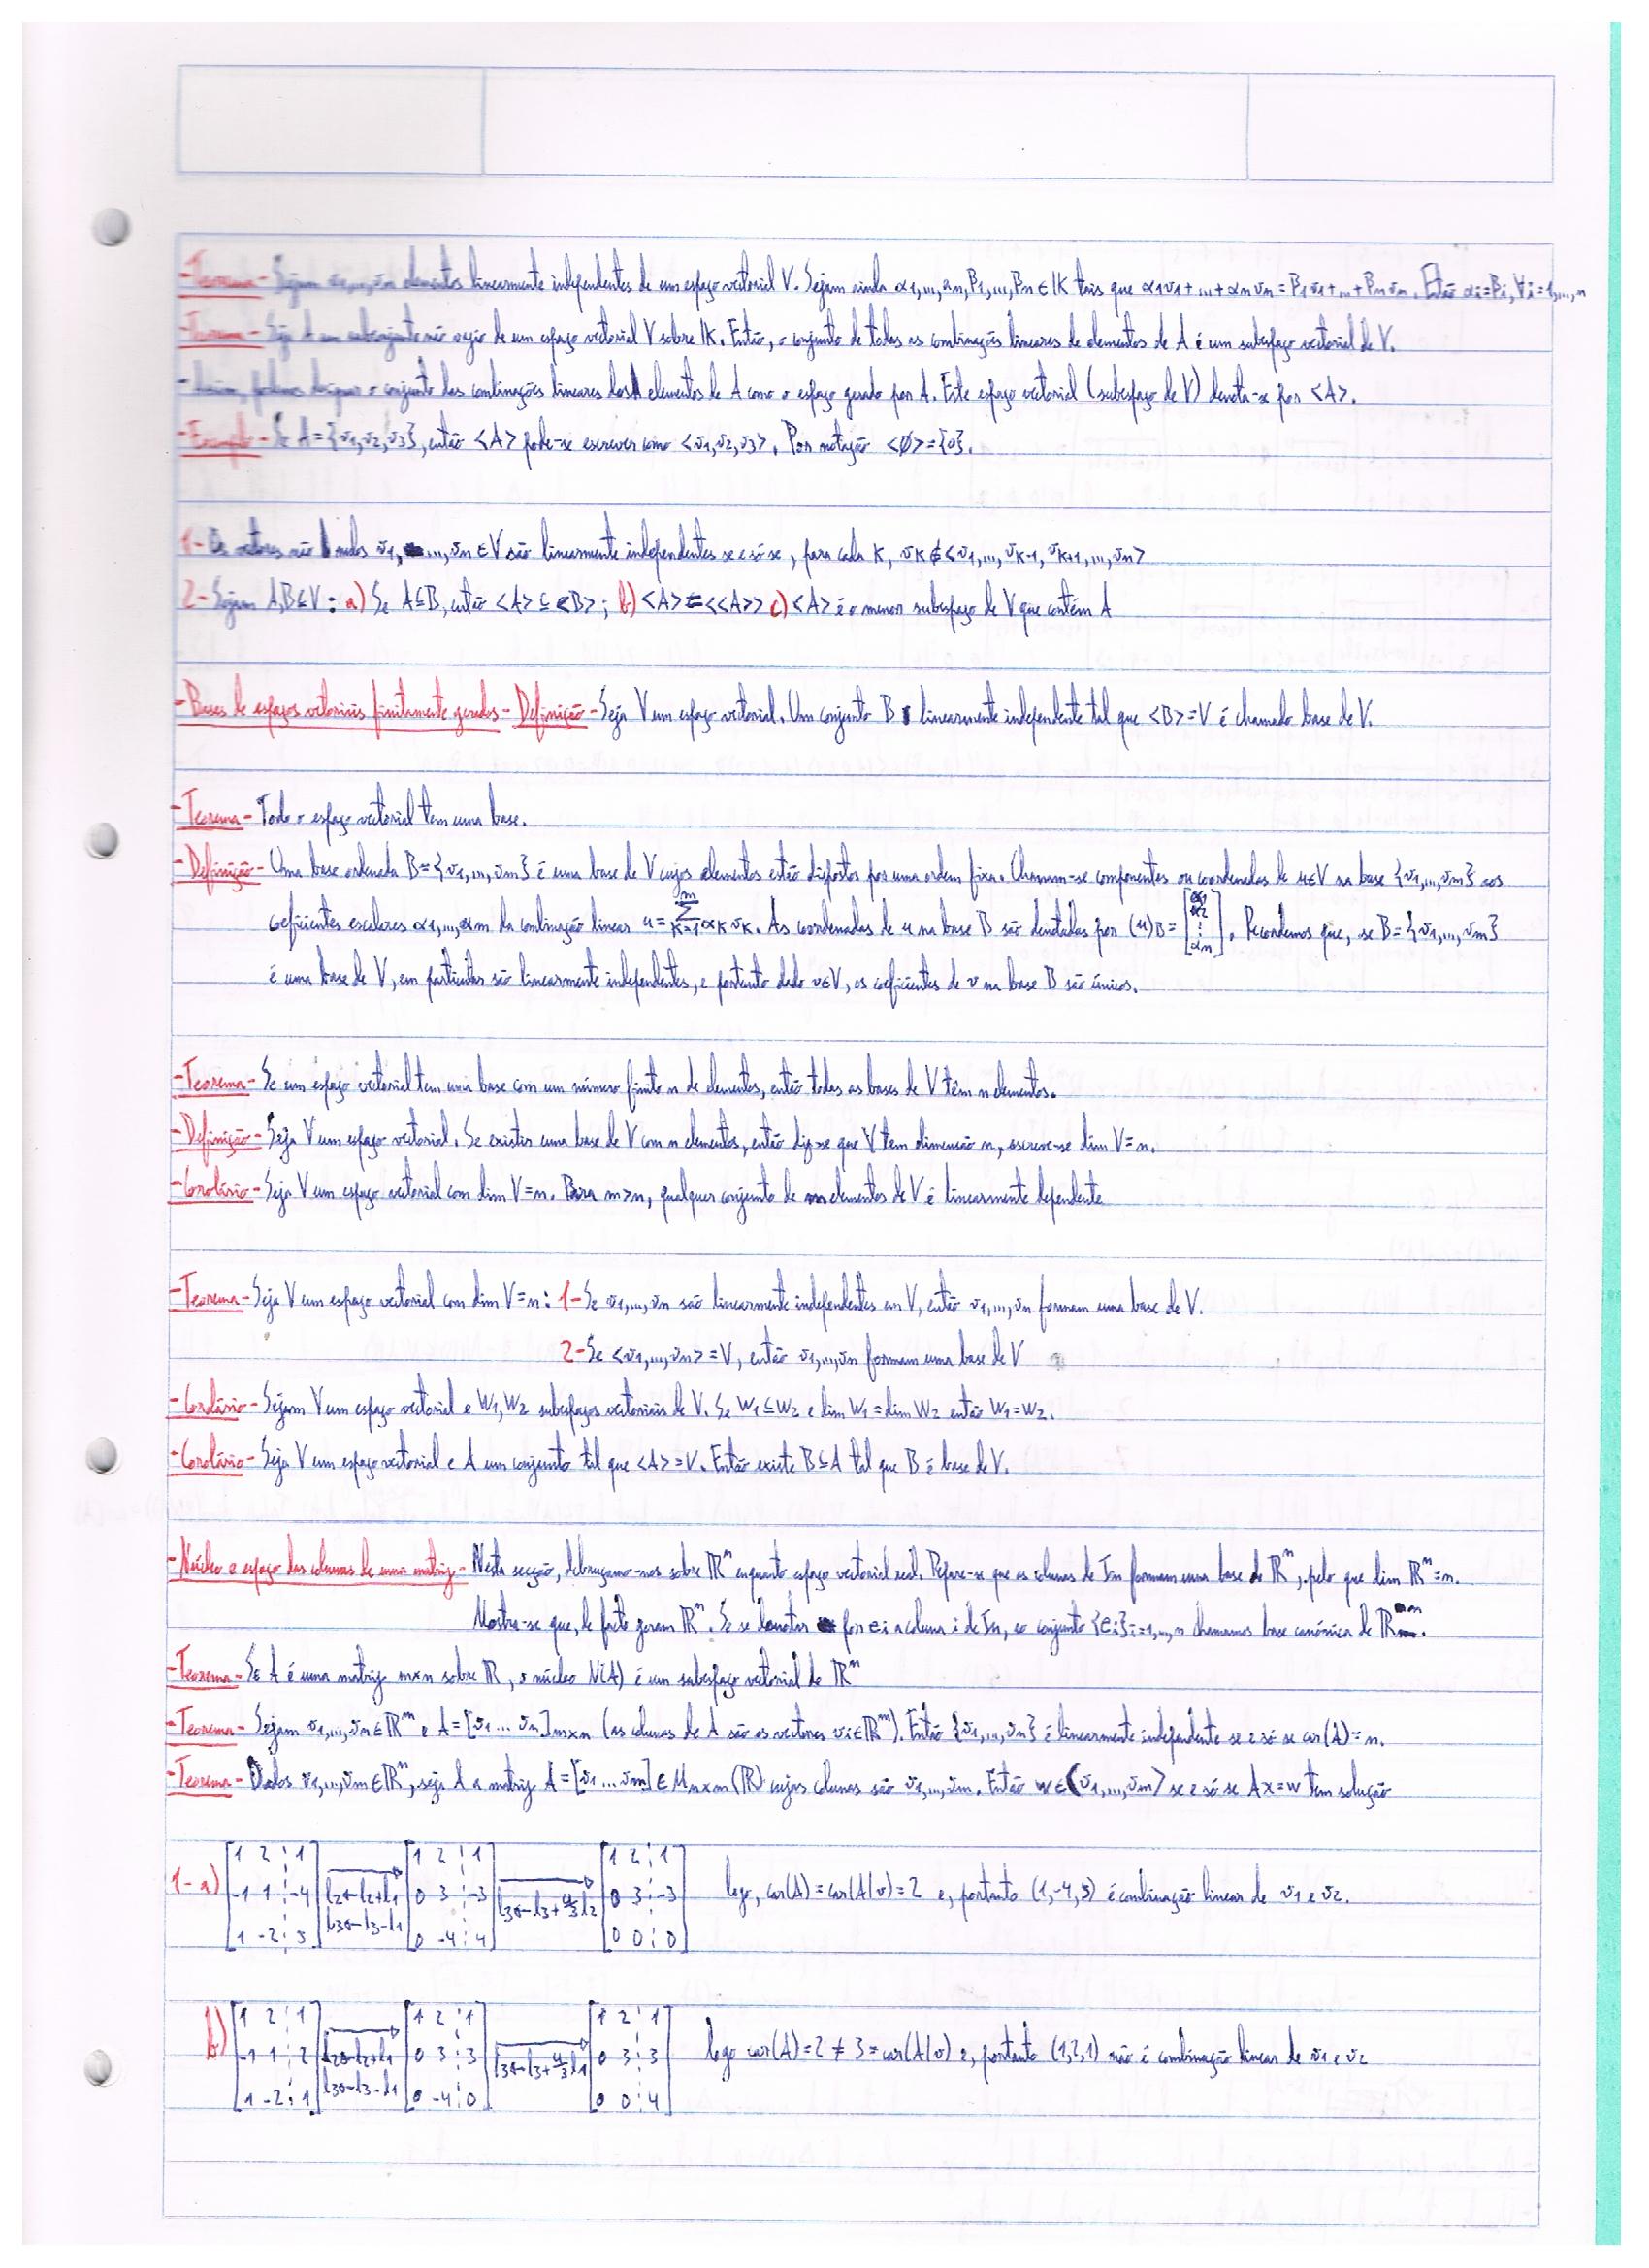 -Teorema- Sejam v1,...,vn elementos linearmente independentes de um espaço vectorial V. Sejam ainda α1,...,αn,β1,...,βn ∈ IK tais que α1v1+...+αnvn=β1v1+...+βnvn. Então αi=βi, ∀i=1,...,n
-Teorema- Seja A um subconjunto não vazio de um espaço vectorial V sobre IK. Então, o conjunto de todas as combinações lineares de elementos de A é um subespaço vectorial de V.
-Assim, podemos designar o conjunto das combinações lineares dos elementos de A como o espaço gerado por A. Este espaço vectorial (subespaço de V) denota-se por <A>.
-Exemplo- Se A={v1,v2,v3}, então <A> pode-se escrever como <v1,v2,v3>. Por notação <∅>={0}.
1- Os vectores não nulos v1,...,vn ∈ V são linearmente independentes se e só se, para cada K, vK ∉ <v1,...,vK-1, vK+1,...,vn>
2- Sejam A,B⊆V: a) Se A⊆B, então <A>⊆<B>; b) <A>=<<A>> c) <A> é o menor subespaço de V que contém A
-Bases de espaços vectoriais finitamente gerados- Definição- Seja V um espaço vectorial. Um conjunto B linearmente independente tal que <B>=V é chamado base de V.
-Teorema- Todo o espaço vectorial tem uma base.
-Definição- Uma base ordenada B={v1,...,vm} é uma base de V cujos elementos estão dispostos por uma ordem fixa. Chamam-se componentes ou coordenadas de u∈V na base {v1,...,vm} aos
coeficientes escalares α1,...,αm da combinação linear u=∑_{K=1}^{m} αK vK. As coordenadas de u na base B são denotadas por (u)B=[α1 α2 ⋮ αm]. Recordemos que, se B={v1,...,vm}
é uma base de V, em particular são linearmente independentes, e portanto dado v∈V, os coeficientes de v na base B são únicos.
-Teorema- Se um espaço vectorial tem uma base com um número finito n de elementos, então todas as bases de V têm n elementos.
-Definição- Seja V um espaço vectorial. Se existir uma base de V com n elementos, então diz-se que V tem dimensão n, escreve-se dim V=n.
-Corolário- Seja V um espaço vectorial com dim V=n. Para m>n, qualquer conjunto de m elementos de V é linearmente dependente
-Teorema- Seja V um espaço vectorial com dim V=n: 1- Se v1,...,vn são linearmente independentes em V, então v1,...,vn formam uma base de V.
2- Se <v1,...,vn>=V, então v1,...,vn formam uma base de V
-Corolário- Sejam V um espaço vectorial e W1,W2 subespaços vectoriais de V. Se W1⊆W2 e dim W1=dim W2 então W1=W2.
-Corolário- Seja V um espaço vectorial e A um conjunto tal que <A>=V. Então existe B⊆A tal que B é base de V.
-Núcleo e espaço das colunas de uma matriz- Nesta secção, debruçamo-nos sobre ℝ^n enquanto espaço vectorial real. Repare-se que as colunas de In formam uma base de ℝ^n, pelo que dim ℝ^n=n.
Mostra-se que, de facto geram ℝ^n. Se se denotar por ei a coluna i de In, ao conjunto {ei}i=1,...,n chamamos base canónica de ℝ^n.
-Teorema- Se A é uma matriz m×n sobre ℝ, o núcleo N(A) é um subespaço vectorial de ℝ^n
-Teorema- Sejam v1,...,vn∈ℝ^m e A=[v1 ... vn]m×n (as colunas de A são os vectores vi∈ℝ^m). Então {v1,...,vn} é linearmente independente se e só se car(A)=n.
-Teorema- Dados v1,...,vm∈ℝ^n, seja A a matriz A=[v1 ... vm]∈Mn×m(ℝ) cujas colunas são v1,...,vm. Então w∈<v1,...,vm> se e só se Ax=w tem solução
1 2 ¦ 1 1 2 ¦ 1 1 2 ¦ 1
1-a) -1 1 ¦ -4 l2←l2+l1 0 3 ¦ -3 l3←l3+4/3 l2 0 3 ¦ -3 logo, car(A)=car(A|v)=2 e, portanto (1,-4,5) é combinação linear de v1 e v2.
l3←l3-l1
1 -2 ¦ 5 0 -4 ¦ 4 0 0 ¦ 0
1 2 ¦ 1 1 2 ¦ 1 1 2 ¦ 1
b) -1 1 ¦ 2 l2←l2+l1 0 3 ¦ 3 l3←l3+4/3 l1 0 3 ¦ 3 logo car(A)=2≠3=car(A|v) e, portanto (1,2,1) não é combinação linear de v1 e v2
l3←l3-l1
1 -2 ¦ 1 0 -4 ¦ 0 0 0 ¦ 4